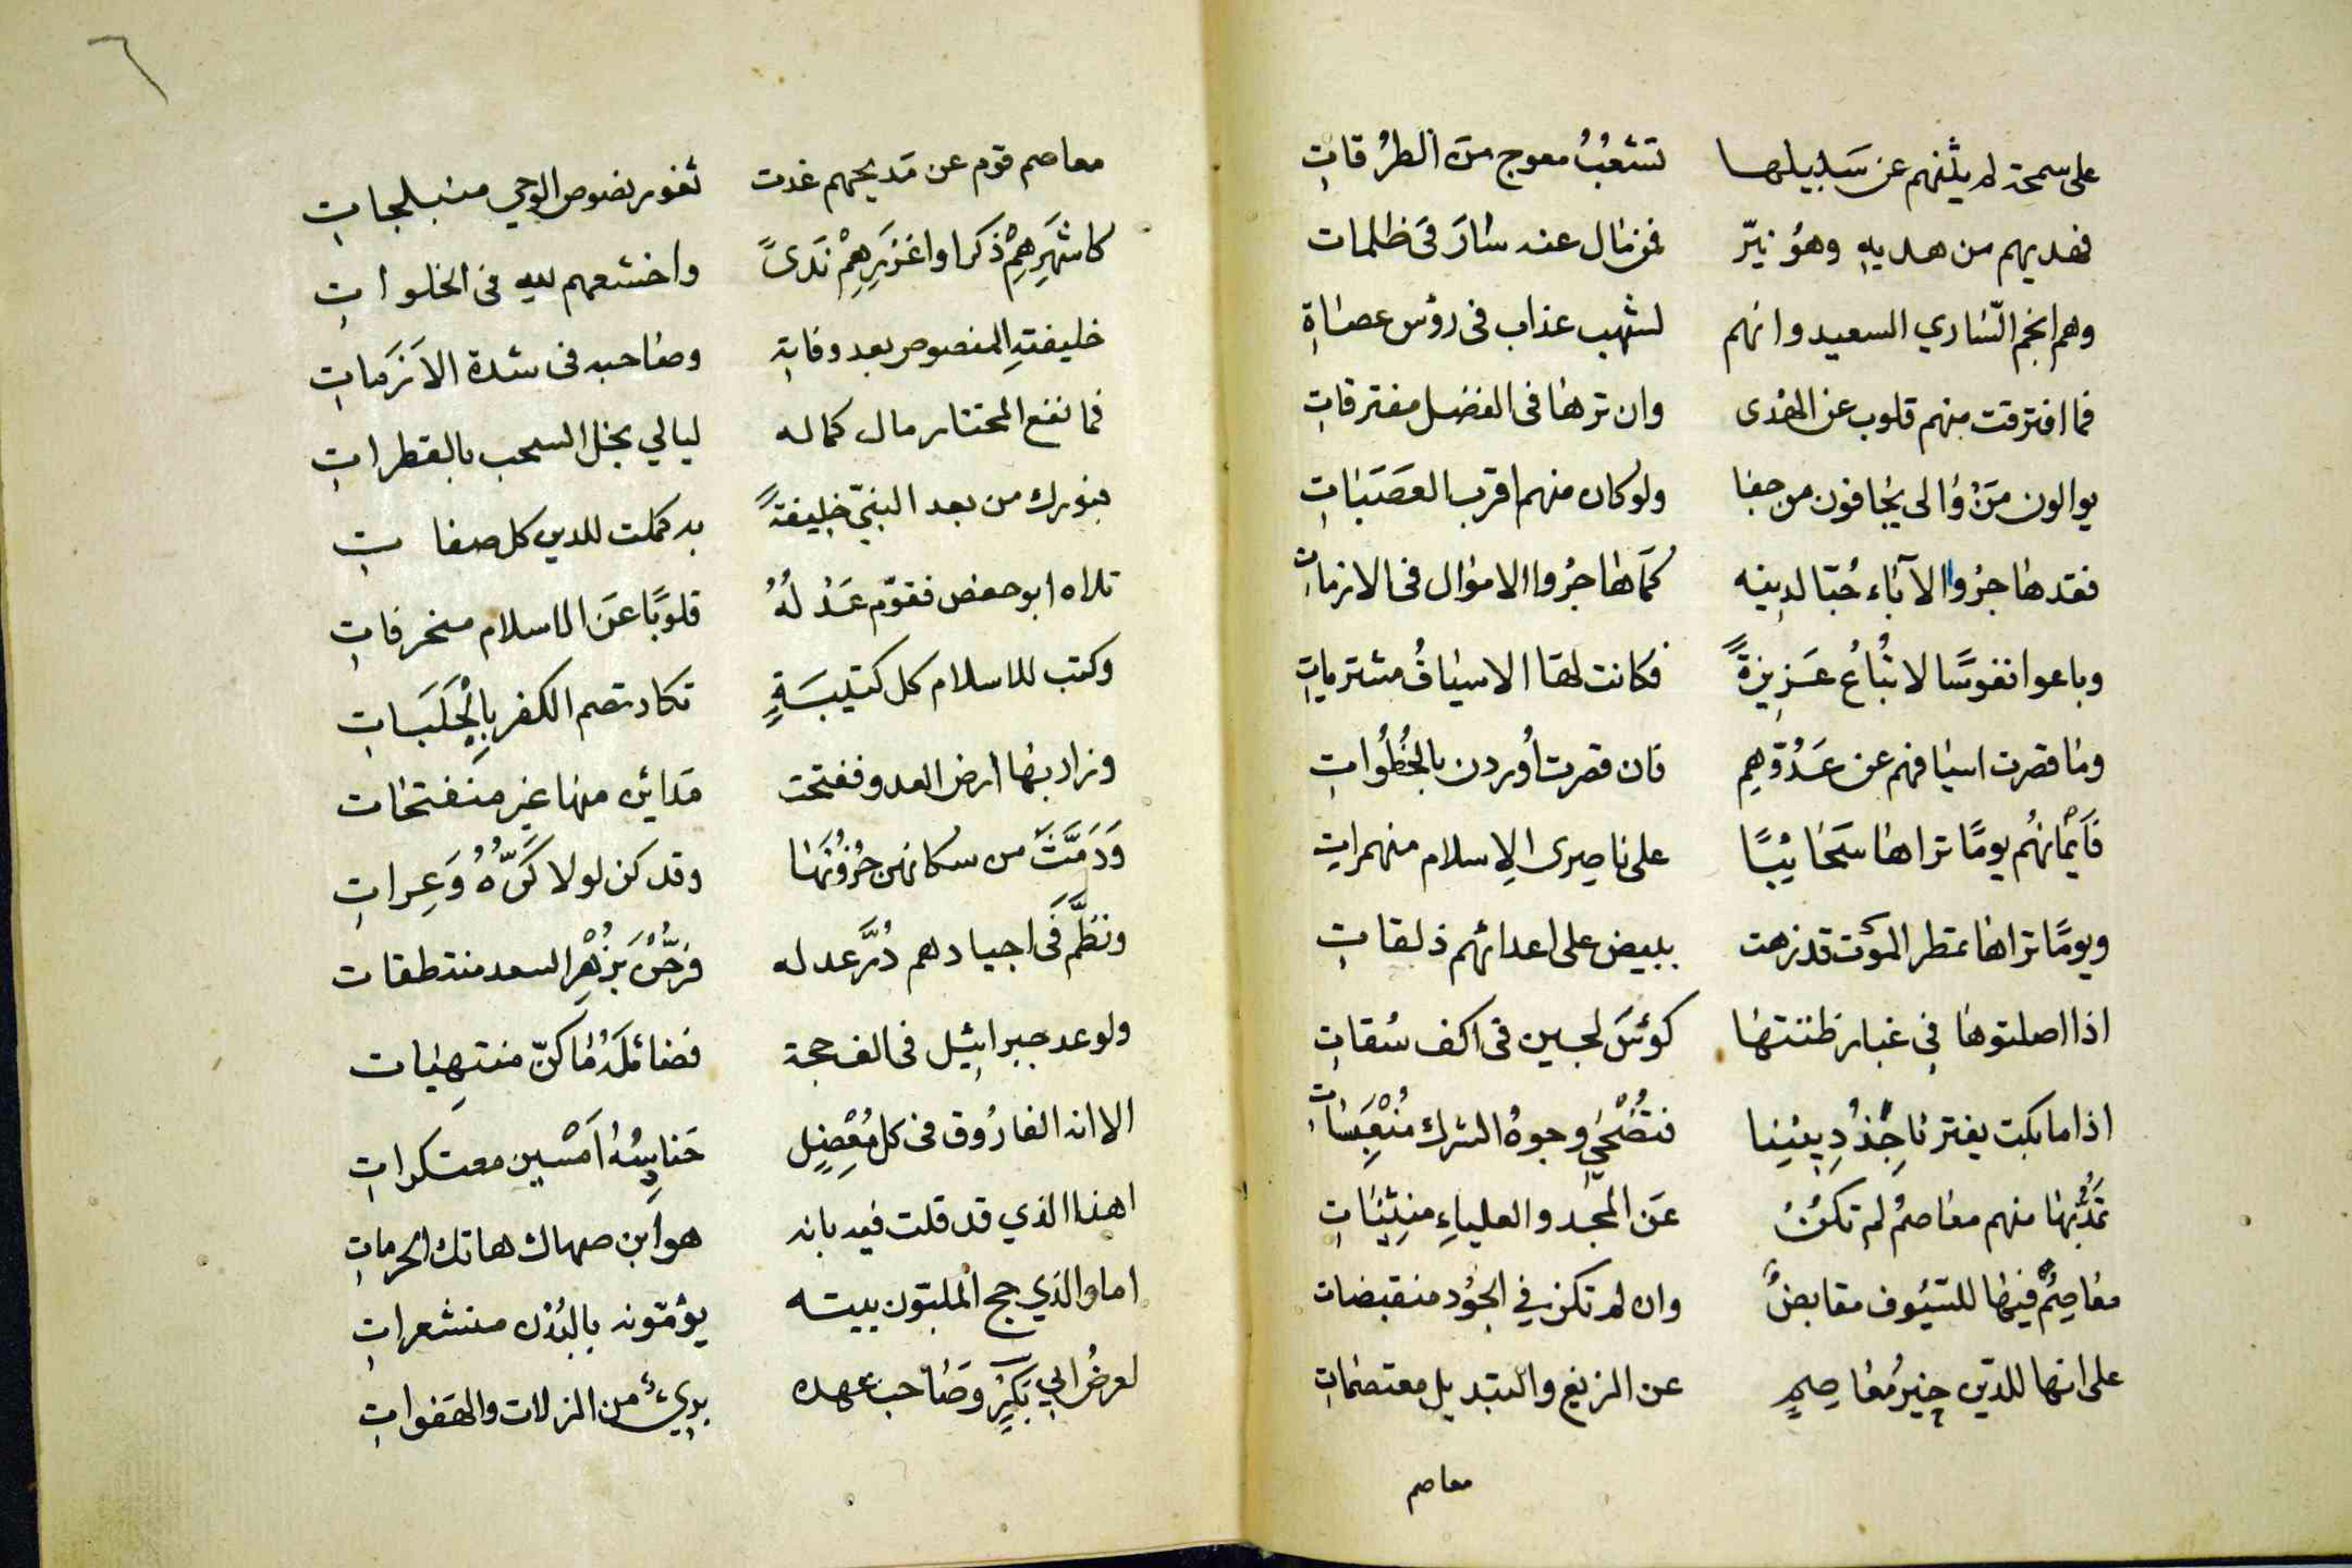 على سمحة لم يثنهم عن سَبيلها تشعُّبُ معوج منَ الطرُقاتِ
فهديهم من هديهِ وهوُ نيّر فمن مال عنه سارَ فى ظلمات
وهم انجم السّاري السعيد وانهم لشهب عذاب فى رؤس عصاةِ
فما افترقت منهم قلوب عن الهدى وان ترها فى الفضل مفترقاتِ
يوالون مَنْ والى يجافون من جفا ولو كان منهم اقرب العَصَبَاتِ
فقد هاجرُوا الآباء حُبّا لدينه كمَا هاجرُوا الاموال فى الازماتِ
وباعوا نفوسًا لا تُباعُ عَزِيزةً فكانت لها الاسيافُ مشترياتِ
وما قصرت اسيافهم عن عَدُوّهِم فان قصرت اُوردن بالخُطُواتِ
فَايْمانهُم يومًا تراها سَحَائبًا على ناصرى الاسلام منهمراتِ
ويومًا تراها تمطر الموْت قد زهت ببيض على اعدائهم ذلقاتِ
اذا اصلتوها فى غبار ظننتها كؤسَ لجين فى اكف سُقاتِ
اذا ما بكت يفتر ناجِذُ دِيننا فتضْحي وجوهُ الشرك مُنْعِبسَاتِ
تمدُّ بها منهم معاصمُ لم تكُنْ عَن المجد والعلياءِ منِثنياتِ
معاصِمٌ فيها للسّيُوف مقابضٌ وان لم تكن في الجوُد منقبضات
على انها للدّين خيرُ مُعاصِمٍ عن الزيغ والتبديل معتصمَاتِ
معاصم
٦
معاصم قوم عن مَديحهم غدت ثغور نصوص الوحي منبلجاتِ
كاشهَرِهِمْ ذكرا واغزَرِهِمْ نَدىً واخشعهم لله فى الخلواتِ
خليفتهِ المنصوص بعد وفاتهِ وصاحبه فى شدة الاَزَمَاتِ
فما نفع المختار مال كماله ليالي بخل السحب بالقطراتِ
فبورك من بعد النبيّ خليفةً به كملت للدين كل صفاتِ
تلاه ابو حفص فقوّم عَدْلُهُ قلوبًا عَن الاسلام منحرفاتِ
وكتب للاسلام كل كتيبَةٍ تكاد تصم الكفر بِالْجَلَبَاتِ
وزار بها ارض العدو ففتحت مَدائن منها غير منفتحات
وَدَمَّثَ من سكانهن حُزُونَهَا وقد كن لولا كَرُّهُ وَعِراتِ
ونظَّم فى اجيادهم دُرَّ عدله فرحْنَ بزُهْرِ السعد منتطقات
ولو عد جبرائيل فى الف حجة فضائلَهُ ما كنّ منتهِيات
الا انه الفارُوق فى كل مُعْضِلٍ حَنادِسُه اَمْسَين معتكراتِ
اهذا الذي قد قلت فيه بانه هو ابن صهاك هاتك الحرماتِ
اما والذي حج الملبّون بيته يؤمّونه بالبُدْن منشعراتِ
لعرضُ ابي بَكرٍ وصَاحب عهده بريئٌ من الزلات والهَفواتِ